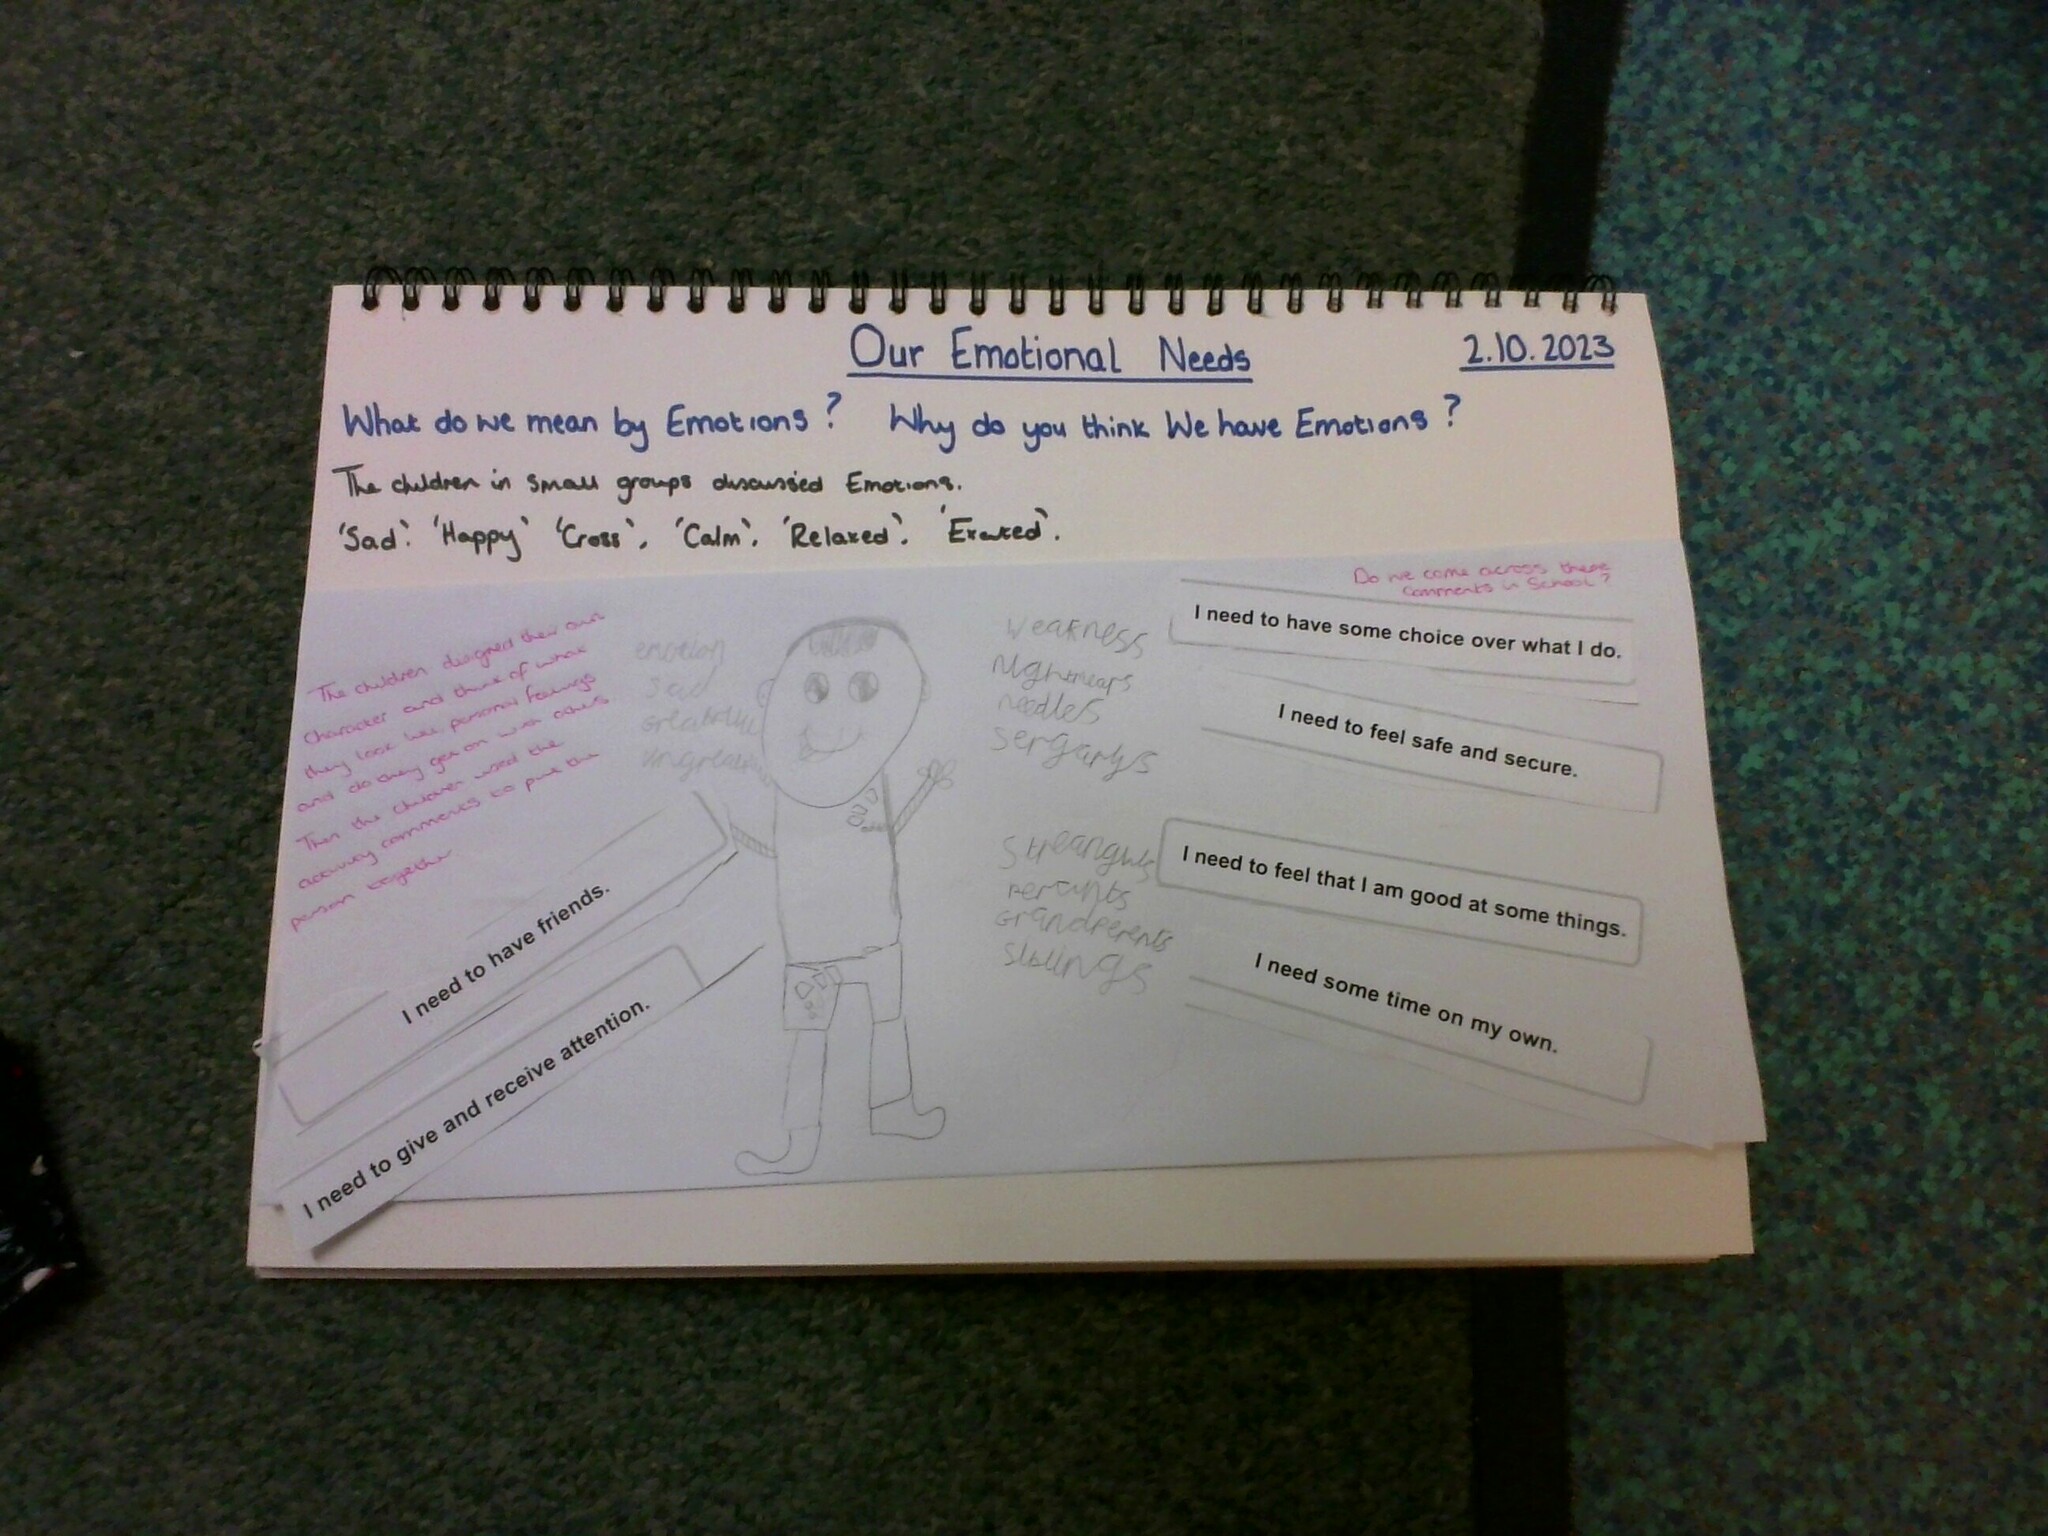 Our Emotional Needs
2.10.2023
What do we mean by Emotions? Why do you think We have Emotions?
The children in small groups discussed Emotions.
'Sad'. 'Happy' 'Cross', 'Calm', 'Relaxed'. 'Excited'.
The children designed their own
character and think of what
they look like, personal feelings
and do they get on with others
Then the children used the
activity comments to put the
person together
emotion
Sad
Do we come across these
comments in School?
weakness
needles
sergarys
perants
Grandperents
siblings
I need to have some choice over what I do.
I need to feel safe and secure.
I need to feel that I am good at some things.
I need some time on my own.
I need to have friends.
I need to give and receive attention.